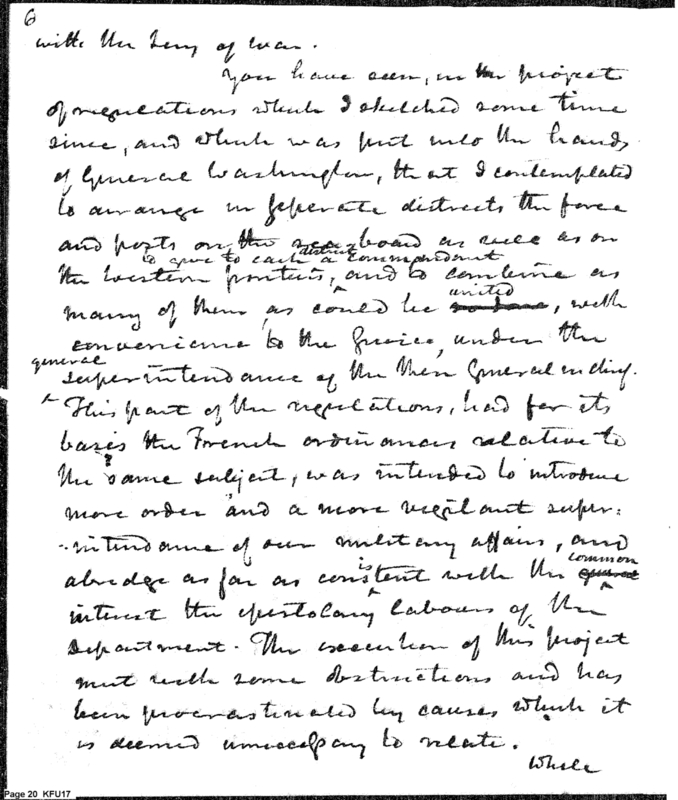 6
with the Secy of war.
You have seen, in the project
of regulations which I sketched some time
since, and which was put into the hands
of General Washington, that I contemplated
to arrange in seperate districts the force
and posts on the sea board as well as on
to give to each district a commandant
the western frontiers, and to combine as
united
many of them as could be, with
convenience to the service, under the
general
superintendance of the then General in chief.
This part of the regulations, had for its
basis the French ordinances relative to
the same subject, was intended to introduce
more order and a more vigilant super-
-intendance of our military affairs, and
common
abridge as far as consistent with the
interest the epistolary labours of the
Department. The execution of this project
met with some obstructions and has
been procrastinated by causes which it
is deemed unnecessary to relate.
While
Page 20 KFU17